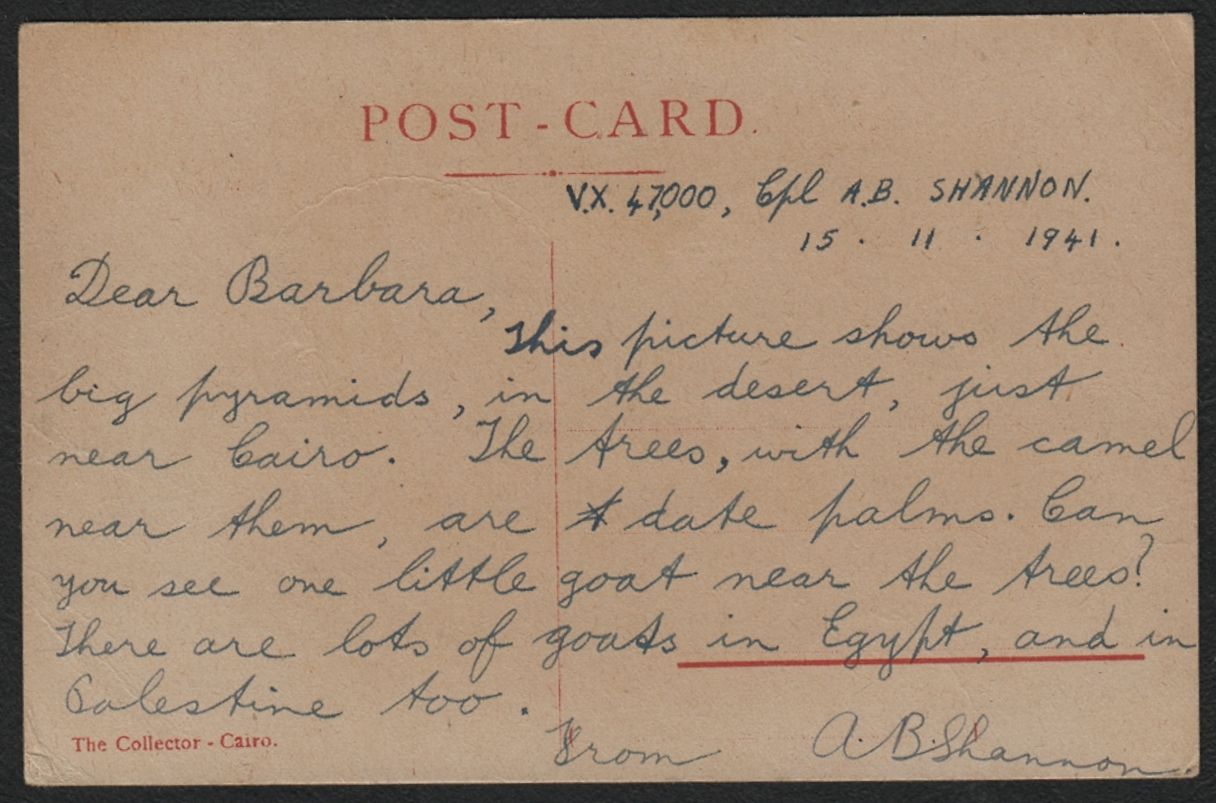 POST-CARD.
V.X. 47,000, Cpl A.B. SHANNON.
15 . 11 . 1941.
Dear Barbara,
This picture shows the
big pyramids, in the desert, just
near Cairo. The trees, with the camel
near them, are date palms. Can
you see one little goat near the trees?
There are lots of goats in Egypt, and in
Palestine too.
The Collector - Cairo.
From A.B.Shannon.